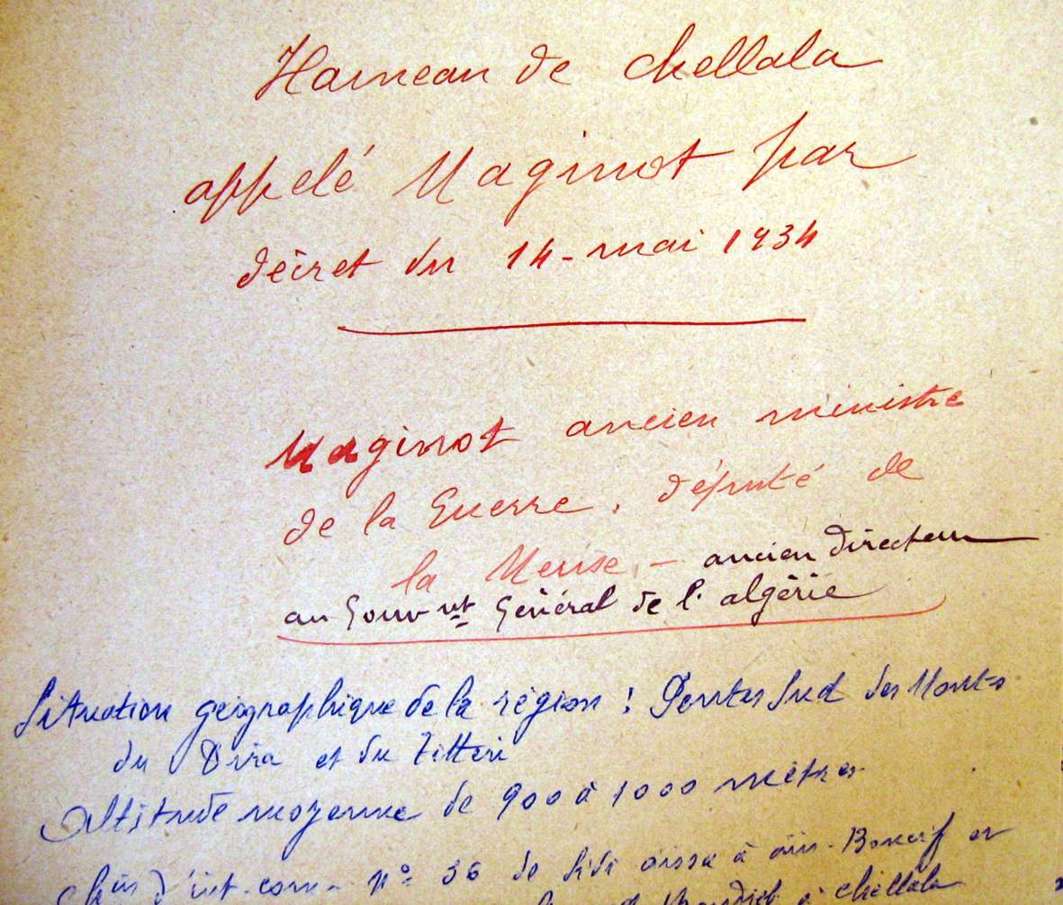 Hameau de chellala
appelé Maginot par
décret du 14 - mai 1934
Maginot ancien ministre
de la Guerre, député de
la Meuse, - ancien directeur
au Gouv nt Général de l'algérie
Situation géographique de la région : Pentes Sud des Monts
du Dira et du Titteri
Altitude moyenne de 900 à 1000 mètres
Chin d'int. com. n° 36 de Sidi aissa à ain-Boucif et
à chellala